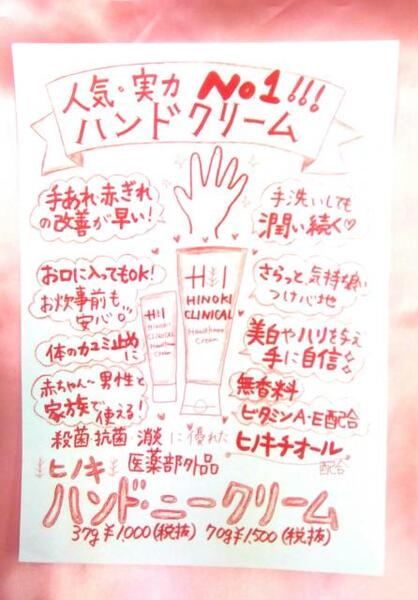 人気・実力 No1!!!
ハンドクリーム
手あれ・赤ぎれ
の改善が早い!
手洗いしても
潤い続く♡
お口に入ってもOK!
お炊事前も
安心
さらっと、気持ち良い
つけ心地
体のカユミ止めに
美白やハリを与え
手に自信
赤ちゃん〜男性と
家族で使える!
無香料
ビタミンA・E配合
ヒノキチオール
配合
H I
HINOKI
CLINICAL
Hand&nee
Cream
H I
HINOKI
CLINICAL
Hand&nee
Cream
殺菌・抗菌・消炎に優れた
医薬部外品
ヒノキ
ハンド・ニークリーム
37g ¥1,000(税抜) 70g ¥1,500(税抜)